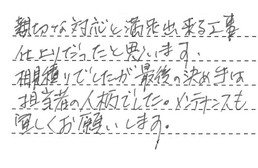 親切な対応と満足出来る工事
仕上りだったと思います。
相見積りでしたが最後の決め手は
担当者の人柄でした。メンテナンスも
宜しくお願いします。